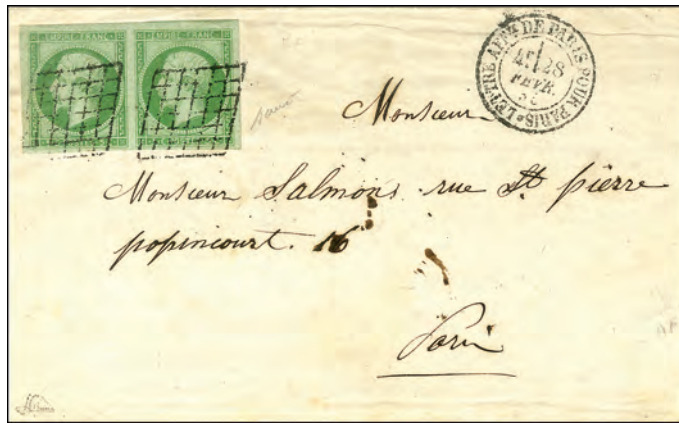 EMPIRE FRANC EMPIRE FRANC
DE PARIS POUR PARIS * LETTRE
28
FEVR.
Monsieur
Monsieur Salmons. rue St pierre
popincourt. 16
Paris